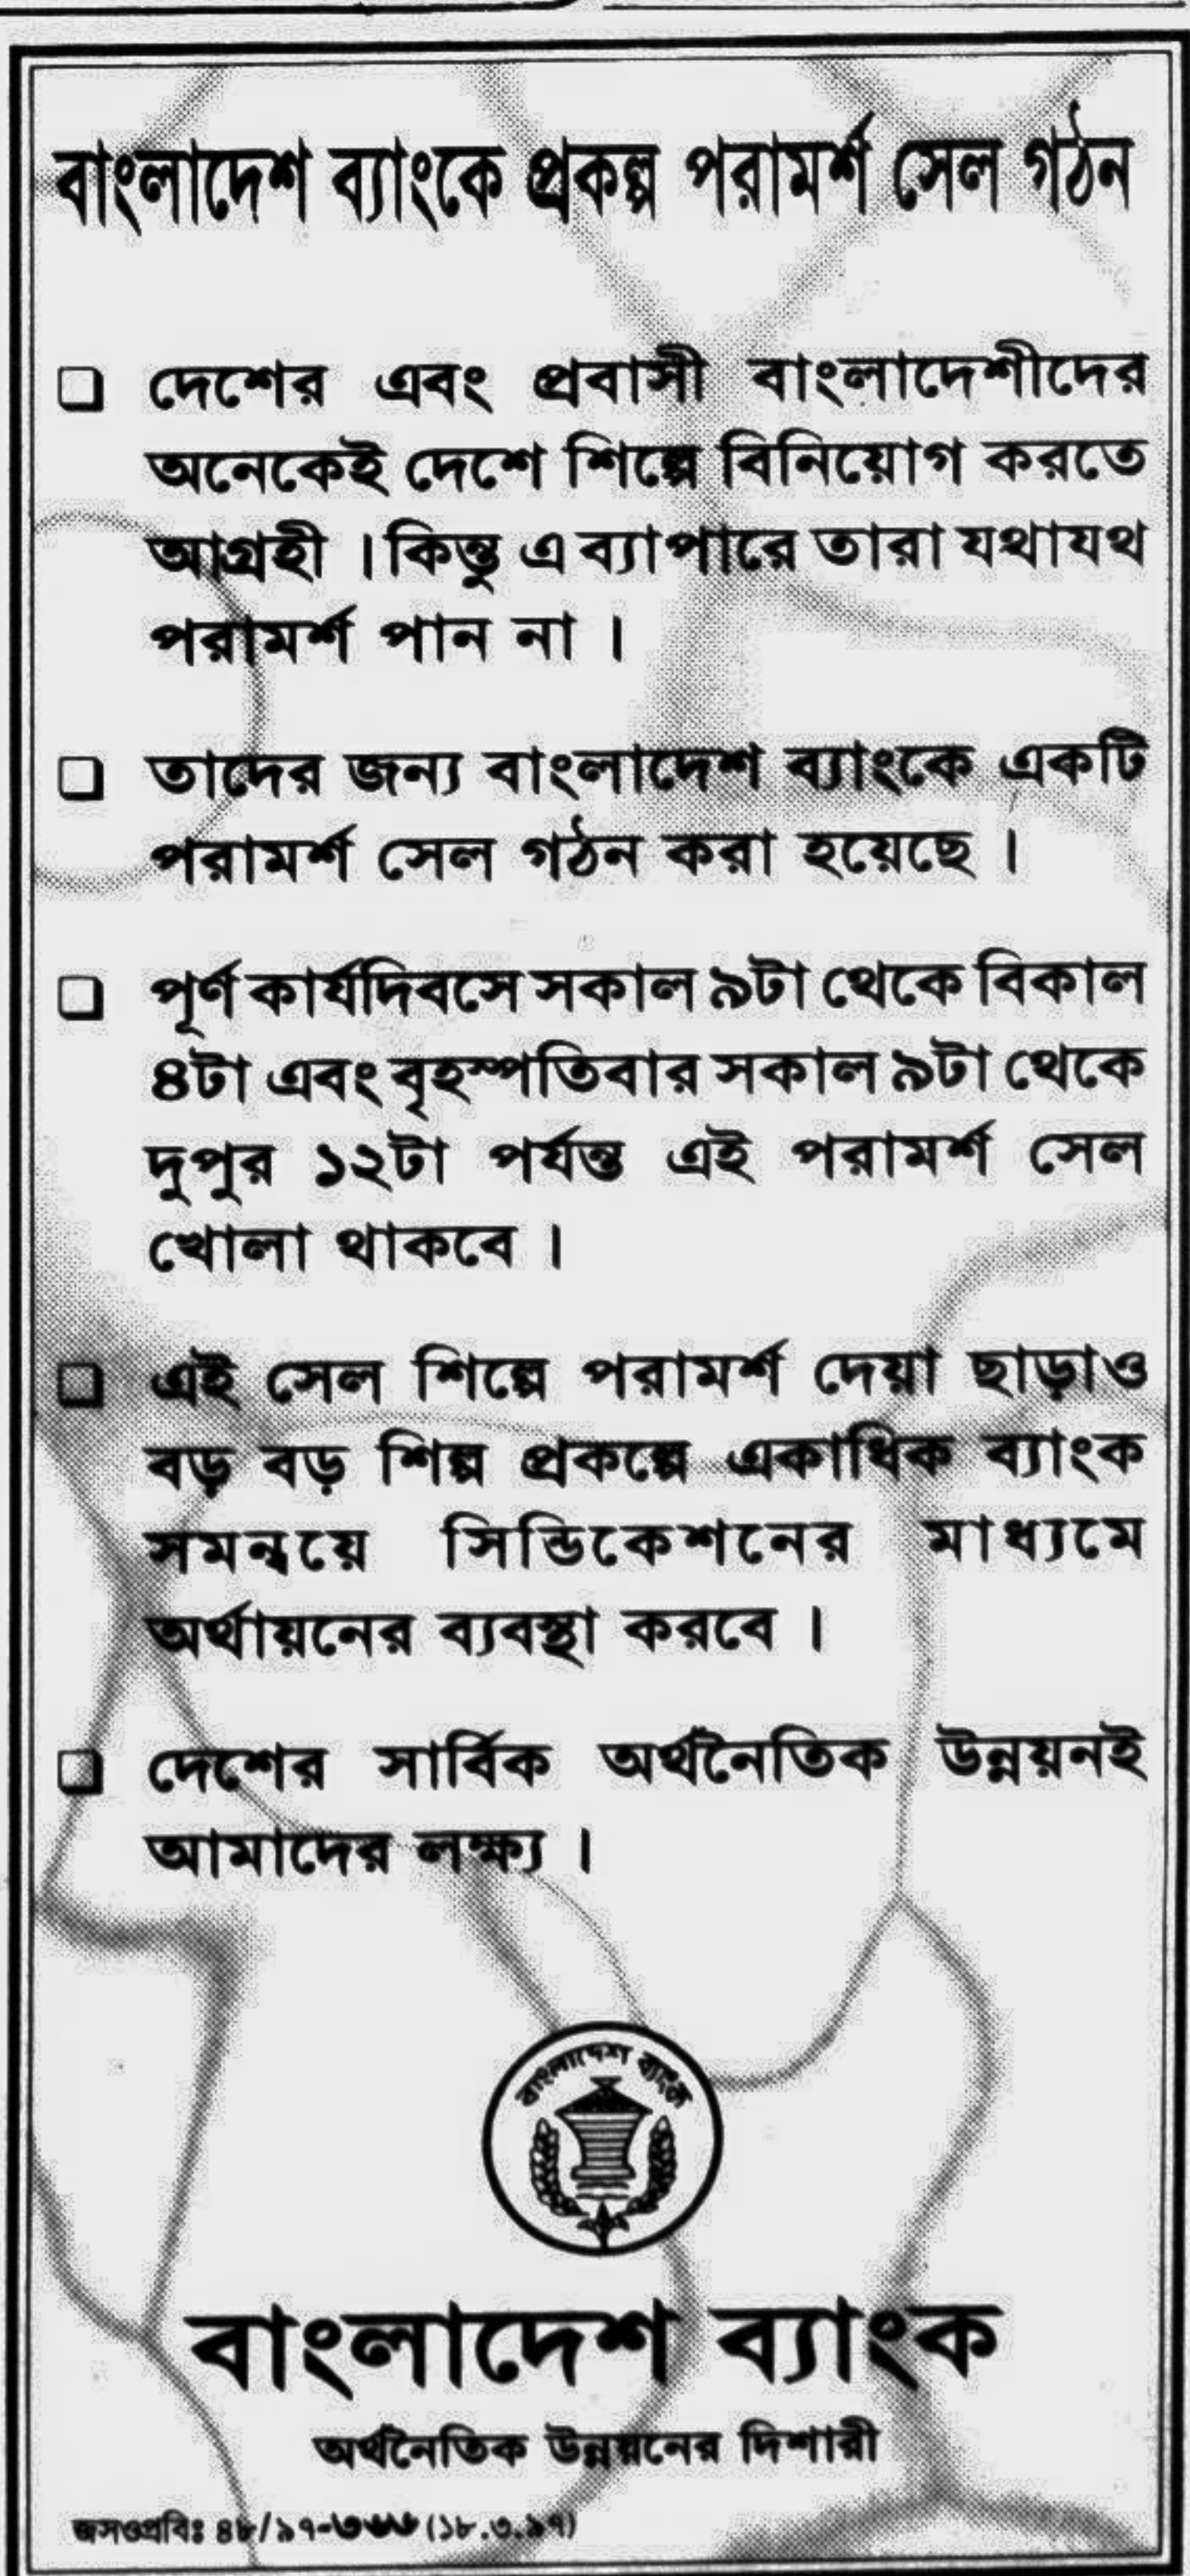 বাংলাদেশ ব্যাংকে প্রকল্প পরামর্শ সেল গঠন
❑ দেশের এবং প্রবাসী বাংলাদেশীদের
অনেকেই দেশে শিল্পে বিনিয়োগ করতে
আগ্রহী । কিন্তু এ ব্যাপারে তারা যথাযথ
পরামর্শ পান না ।
❑ তাদের জন্য বাংলাদেশ ব্যাংকে একটি
পরামর্শ সেল গঠন করা হয়েছে ।
❑ পূর্ণ কার্যদিবসে সকাল ৯টা থেকে বিকাল
৪টা এবং বৃহস্পতিবার সকাল ৯টা থেকে
দুপুর ১২টা পর্যন্ত এই পরামর্শ সেল
খোলা থাকবে ।
❑ এই সেল শিল্পে পরামর্শ দেয়া ছাড়াও
বড় বড় শিল্প প্রকল্পে একাধিক ব্যাংক
সমন্বয়ে সিন্ডিকেশনের মাধ্যমে
অর্থায়নের ব্যবস্থা করবে ।
❑ দেশের সার্বিক অর্থনৈতিক উন্নয়নই
আমাদের লক্ষ্য ।
বাংলাদেশ ব্যাংক
বাংলাদেশ ব্যাংক
অর্থনৈতিক উন্নয়নের দিশারী
জসওপ্রবিঃ ৪৮/৯৭-৩৬৬ (১৮.৩.৯৭)